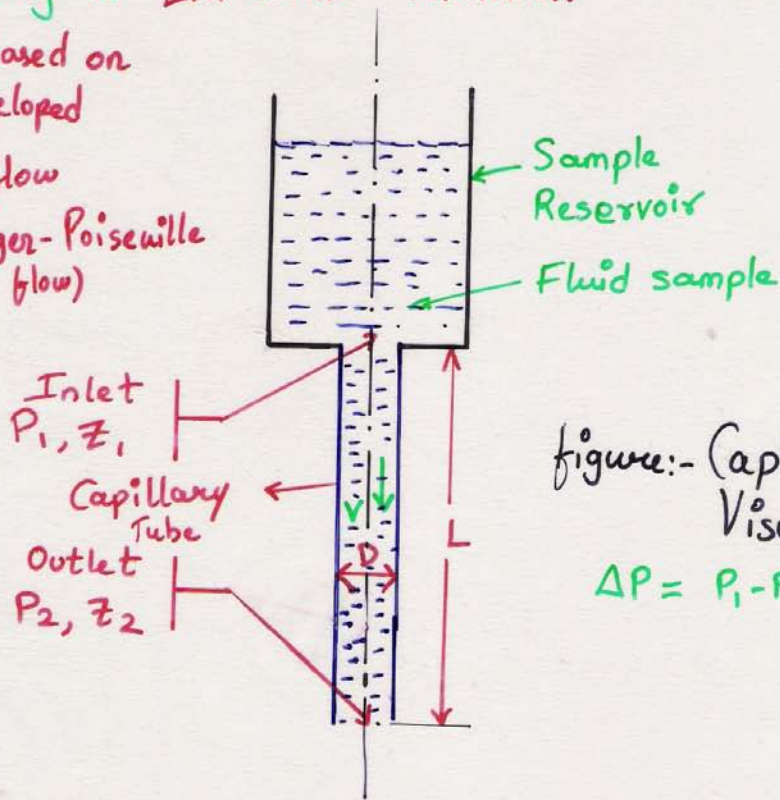 ased on
eloped
low
ger-Poiseuille
flow)
Sample
Reservoir
Fluid sample
Inlet
P₁, Z₁
Capillary
Tube
Outlet
P₂, Z₂
D
L
figure:- Cap
Vis
ΔP = P₁-P